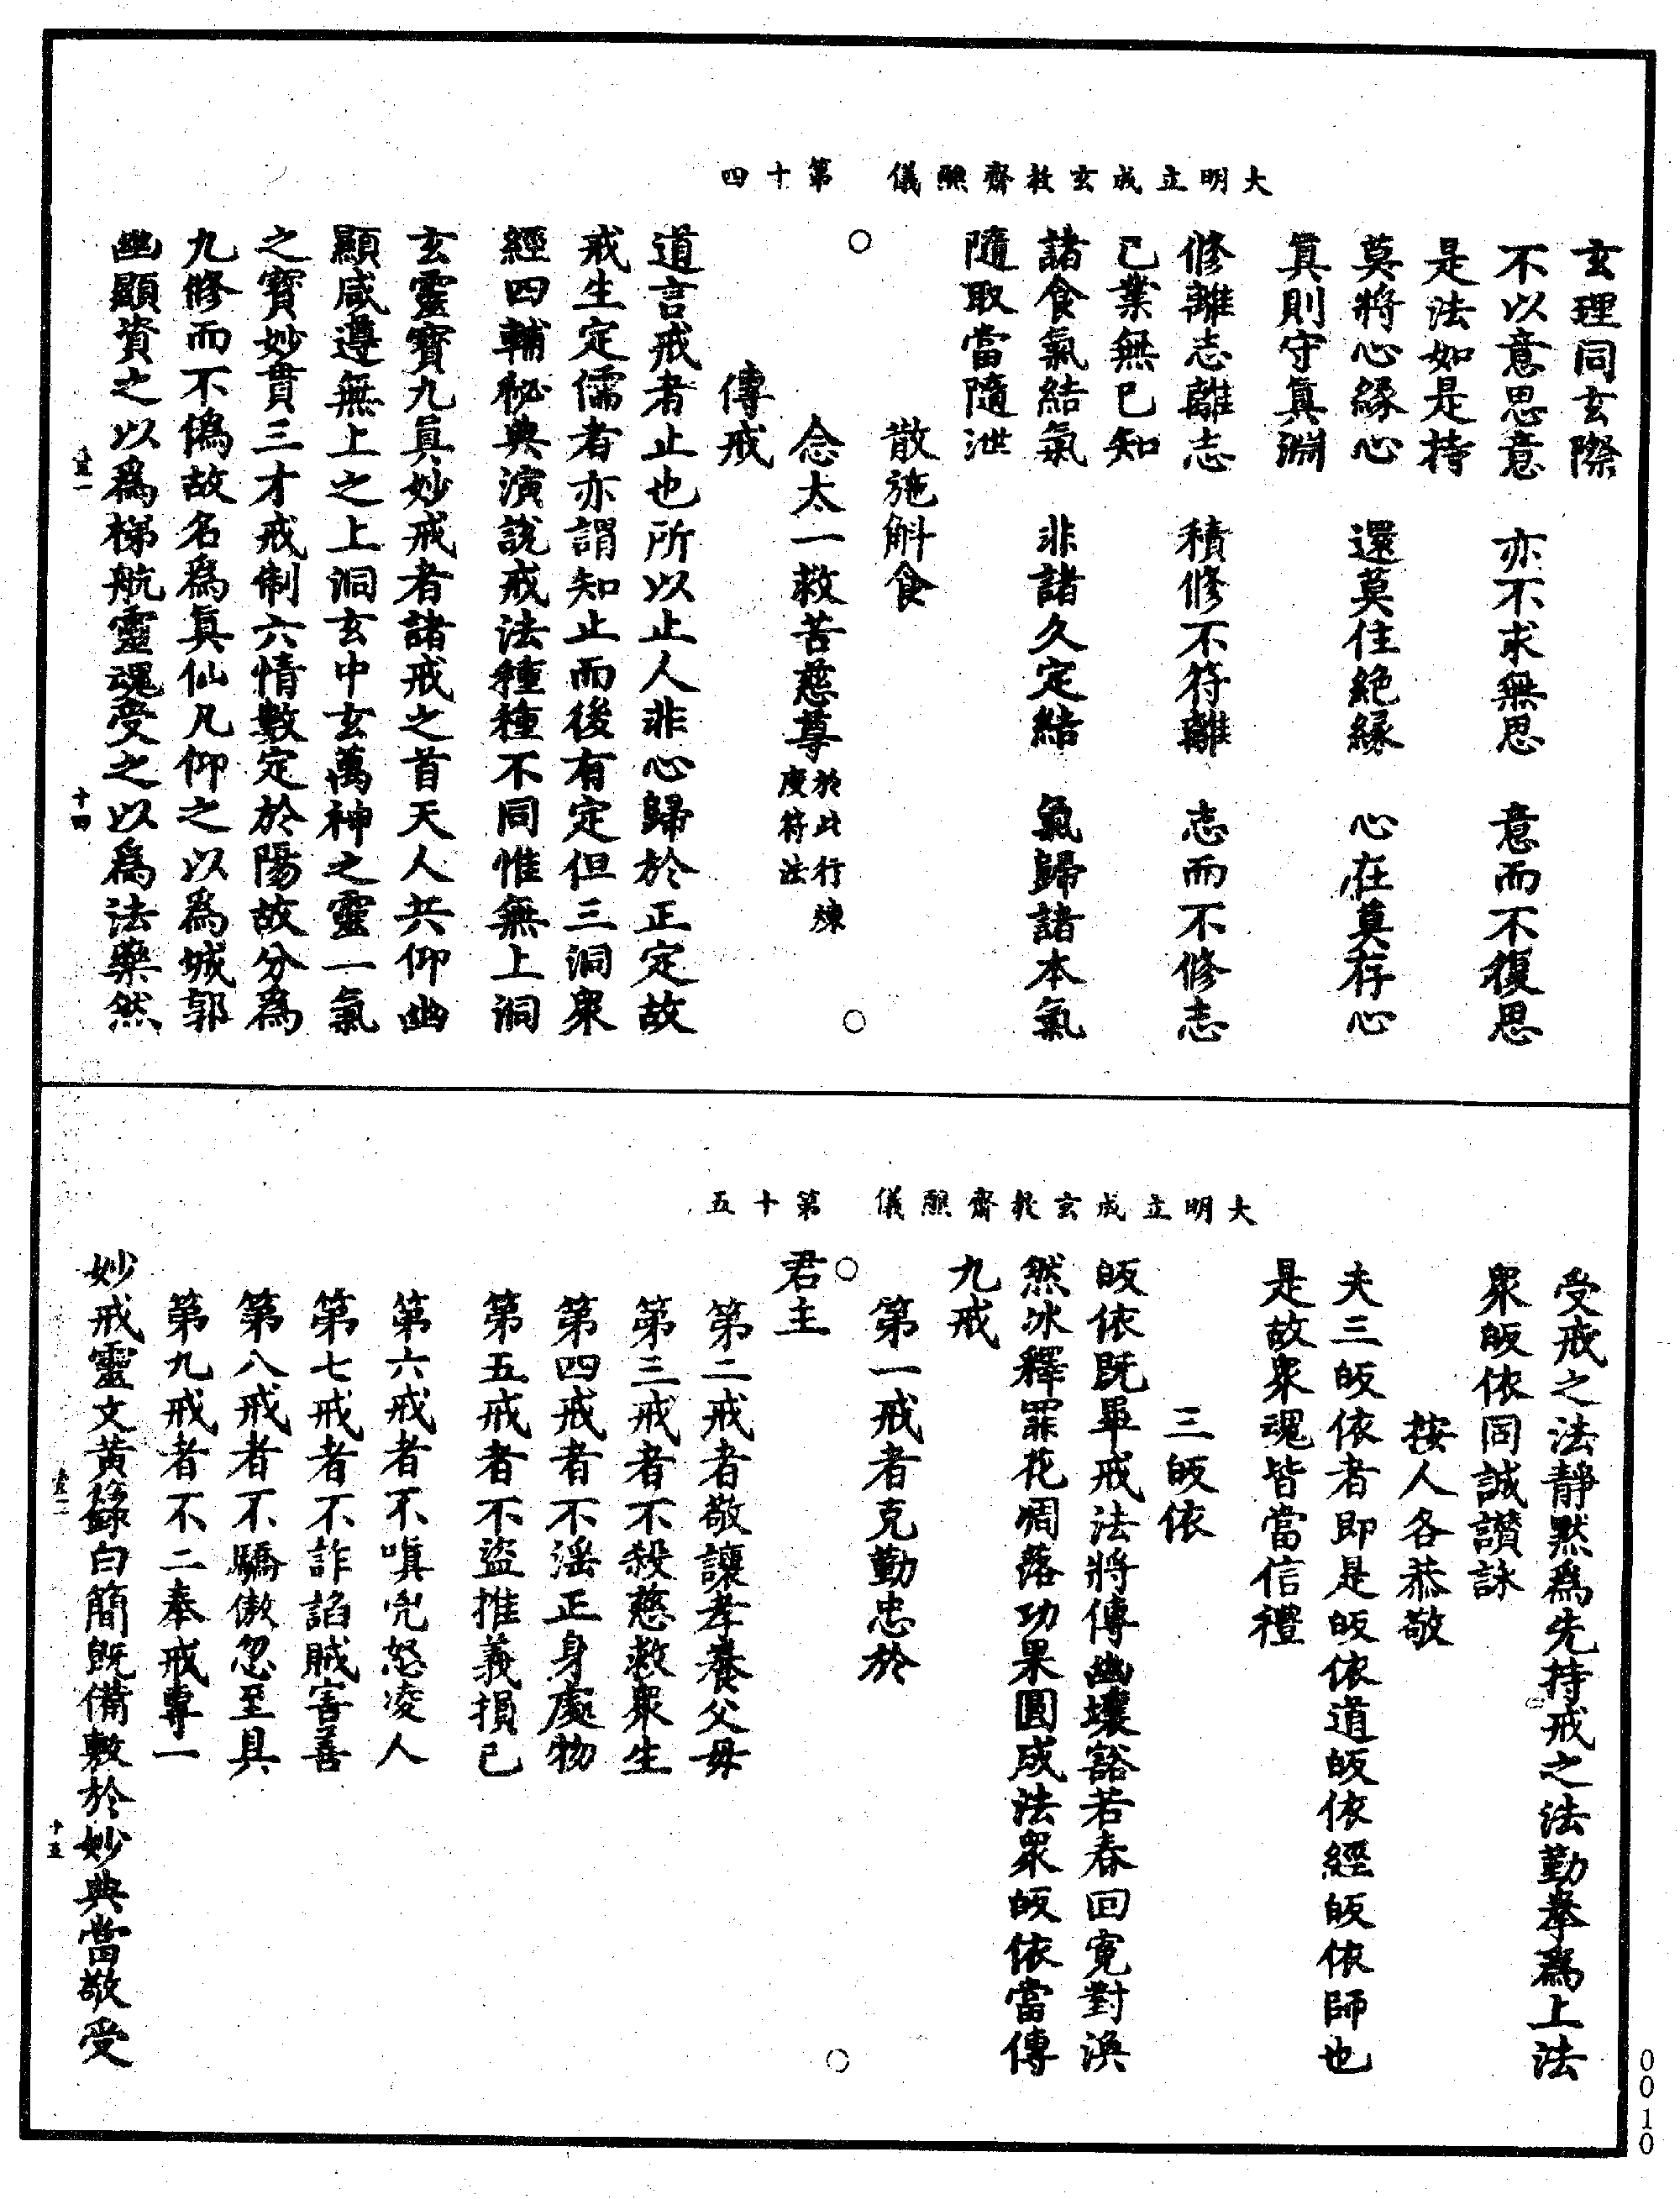 大明立成玄教齋醮儀　第十四
玄理同玄際
不以意思意　亦不求無思　意而不復思
是法如是持
莫將心緣心　還莫住絕緣　心在莫存心
真則守真淵
修離志離志　積修不符離　志而不修志
已業無已知
諸食氣結氣　非諸久定結　氣歸諸本氣
隨取當隨泄
散施斛食
念太一救苦慈尊於此行煉度符法
傳戒
道言戒者止也所以止人非心歸於正定故
戒生定儒者亦謂知止而後有定但三洞眾
經四輔秘典演說戒法種種不同惟無上洞
玄靈寶九真妙戒者諸戒之首天人共仰幽
顯咸遵無上之上洞玄中玄萬神之靈一氣
之寶妙貫三才戒制六情數定於陽故分為
九修而不偽故名為真仙凡仰之以為城郭
幽顯資之以為梯航靈魂受之以為法藥然
壹一　十四
大明立成玄教齋醮儀　第十五
受戒之法靜默為先持戒之法勤拳為上法
眾皈依同誠讚詠
按人各恭敬
夫三皈依者即是皈依道皈依經皈依師也
是故眾魂皆當信禮
三皈依
皈依既畢戒法將傳幽壤豁若春回寃對渙
然冰釋罪花凋落功果圓成法眾皈依當傳
九戒
第一戒者克勤忠於
君主
第二戒者敬讓孝養父母
第三戒者不殺慈救眾生
第四戒者不淫正身處物
第五戒者不盜推義損己
第六戒者不嗔兇怒凌人
第七戒者不詐諂賊害善
第八戒者不驕傲忽至真
第九戒者不二奉戒專一
妙戒靈文黃籙白簡既備敷於妙典當敬受
壹二　十五
0010